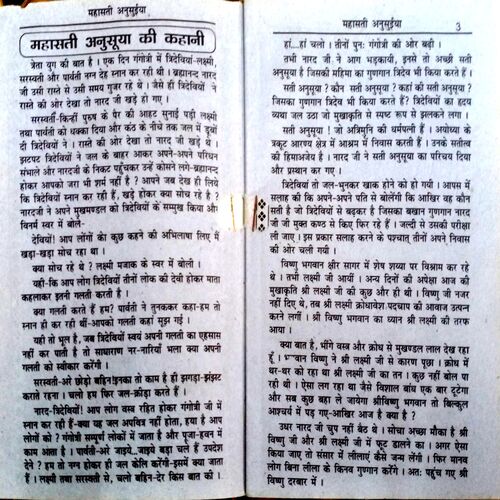 महासती अनुसुईया
महासती अनुसूया की कहानी
त्रेता युग की बात है। एक दिन गंगोत्री में त्रिदेवियां-लक्ष्मी,
सरस्वती और पार्वती नग्न देह स्नान कर रही थी। ब्रह्मानन्द नारद
जी उसी रास्ते से उसी समय गुजर रहे थे। जैसे ही त्रिदेवियों ने
रास्ते की ओर देखा तो नारद जी खड़े हो गए।
सरस्वती-किन्हीं पुरुष के पैर की आहट सुनाई पड़ी लक्ष्मी
तथा पार्वती को धक्का दिया और कंठ के नीचे तक जल में डूबों
दी त्रिदेवियों ने। रास्ते की ओर देखा तो नारद जी खड़े थे।
झटपट त्रिदेवियों ने जल के बाहर आकर अपने-अपने परिधान
संभाले और नारदजी के निकट पहुंचकर उन्हें कोसने लगे-ब्रह्मानन्द
होकर आपको जरा भी शर्म नहीं है? आपने जब देख ही लिये
कि त्रिदेवियाँ स्नान कर रही हैं, खड़े होकर क्या सोच रहे हैं?
नारदजी ने अपने मुखमण्डल को त्रिदेवियों के सम्मुख किया और
विनर्म स्वर में बोले-
देवियों! आप लोगों का कुछ कहने की अभिलाषा लिए मैं
खड़ा-खड़ा सोच रहा था।
क्या सोच रहे थे? लक्ष्मी मजाक के स्वर में बोली।
यही-कि आप लोग त्रिदेवियों तीनों लोक की देवी होकर माता
कहलाकर इतनी गलती करती है।
क्या गलती करते हैं हम? पार्वती ने तुनककर कहा-हम तो
स्नान ही कर रही थीं-आपको गलती कहां सुझ गई।
यही तो भूल है, जब त्रिदेवियों स्वयं अपनी गलती का एहसास
नहीं कर पाती है तो साधारण नर-नारियां भला क्या अपनी
गलती को स्वीकार करेंगी।
सरस्वती-अरे छोड़ो बहिन इनका तो काम है ही झगड़ा-झंझट
करते रहना। चलो हम फिर जल-क्रीड़ा करते हैं।
नारद-त्रिदेवियों! आप लोग वस्त्र रहित होकर गंगोत्री जी में
स्नान कर रही हैं-क्या यह जल अपवित्र नहीं होता, हया है आप
लोगों को? गंगोत्री सम्पूर्ण लोकों में जाता है और पूजा-हवन में
काम आता है। पार्वती-अरे जाइये...जाइये बड़ा चले हैं उपदेश
देने? हम तो नग्न होकर ही जल केलि करेंगी-इसमें क्या जाता
हैं। लक्ष्मी तथा सरस्वती से, चलो बहिन-देर किस बात की।
महासती अनुसुईया
3
हां...हां चलो। तीनों पुनः गंगोत्री की ओर बढ़ी।
तभी नारद जी ने आग भड़कायी, इनसे तो अच्छी सती
अनुसूया है जिसकी महिमा का गुणगान त्रिदेव भी किया करते हैं।
सती अनुसूया? कौन सती अनुसूया? कहां की सती अनुसूया?
जिसका गुणगान त्रिदेव भी किया करते हैं? त्रिदेवियों का हृदय
व्यथा जल उठा जो मुखाकृति से स्पष्ट रूप से झलकने लगा।
सती अनुसूया! जो अत्रिमुनि की धर्मपत्नी हैं। अयोध्या के
त्रकूट आरण्य क्षेत्र में आश्रम में निवास करती हैं। उनके सतीत्व
की हिमाअजेय है। नारद जी ने सती अनुसूया का परिचय दिया
और प्रस्थान कर गए।
त्रिदेवियां तो जल-भुनकर खाक होने को हो गयी। आपस में,
सलाह की कि अपने-अपने पति से बोलेंगी कि आखिर वह कौन
सती है जो त्रिदेवियों से बढ़कर है जिसका बखान गुणगान नारद
जी जी मुक्त कण्ठ से किए फिर रहे हैं। जल्दी से उसकी परीक्षा
ली जाए। इस प्रकार सलाह करने के पश्चात् तीनों अपने निवास
की ओर चली गयी।
विष्णु भगवान क्षीर सागर में शेष शय्या पर विश्राम कर रहे
थे। तभी लक्ष्मी जी आयीं। अन्य दिनों की अपेक्षा आज की
मुखाकृति श्री लक्ष्मी जी की कुछ और ही थी। विष्णु जी नजर
नहीं दिए थे, तब श्री लक्ष्मी क्रोधावेश-पदचाप की आवाज उत्पन्न
करने लगीं। श्री विष्णु भगवान का ध्यान श्री लक्ष्मी की तरफ
आया।
क्या बात है, भींगे वस्त्र और क्रोध से मुखण्डल लाल देख रहा
हूँ। भगवान विष्णु ने श्री लक्ष्मी जी से कारण पूछा। क्रोध में
थर-थर को रहा था श्री लक्ष्मी जी का तन। कुछ नहीं बोल पा
रही थी। ऐसा लग रहा था जैसे विशाल बांध एक बार टूटेगा
और सब कुछ बहा ले जायेगा श्रीविष्णु भगवान तो बिल्कुल
आश्चर्य में पड़ गए-आखिर आज है क्या है?
उधर नारद जी चुप नहीं बैठे थे। सोचा अच्छा मौका है श्री
विष्णु जी और श्री लक्ष्मी जी में फूट डालने का। अगर ऐसा
किया जाए तो संसार में लीलाएं कैसे जन्म लेंगी। फिर मानव
लोग बिना लीला के किनव गुणगान करेंगे। अतः पहुंच गए श्री
विष्णु दरबार में।